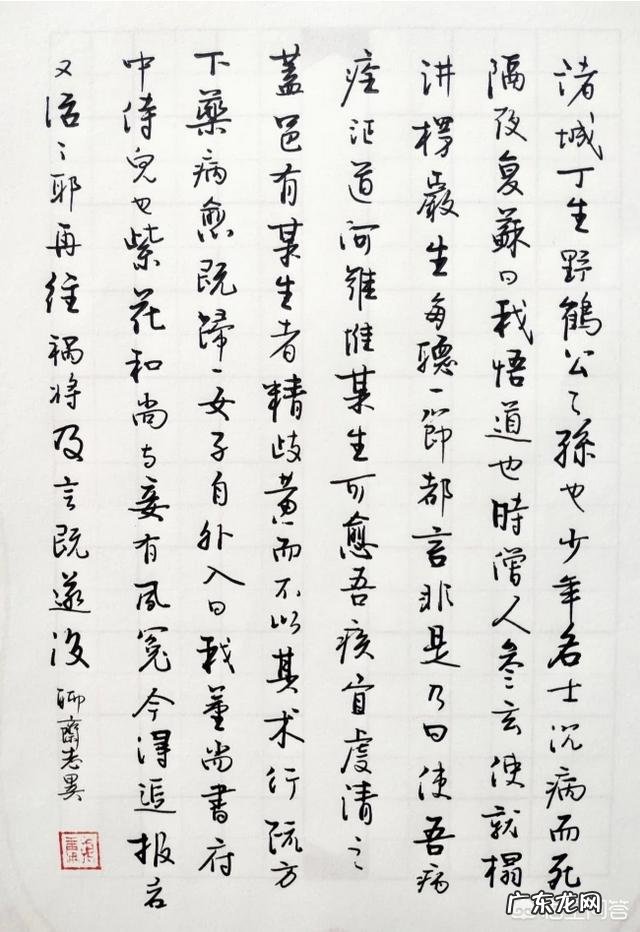 诸城丁生野鶴公〻孫也少年名士沉病而死
隔夜复蘇曰我悟道也時僧人参玄使就榻
讲楞嚴生每聽一節都言非是乃曰使吾病
痊证道何難惟某生可愈吾疾宜虔请之
蓋邑有某生者精歧黄而不以其术行疏方
下藥病愈既歸一女子自外入曰我董尚書府
中侍兒也紫花和尚与妾有夙冤今得追报君
又活之耶再往禍将及言既遂没
聊齋志異
广东龙网